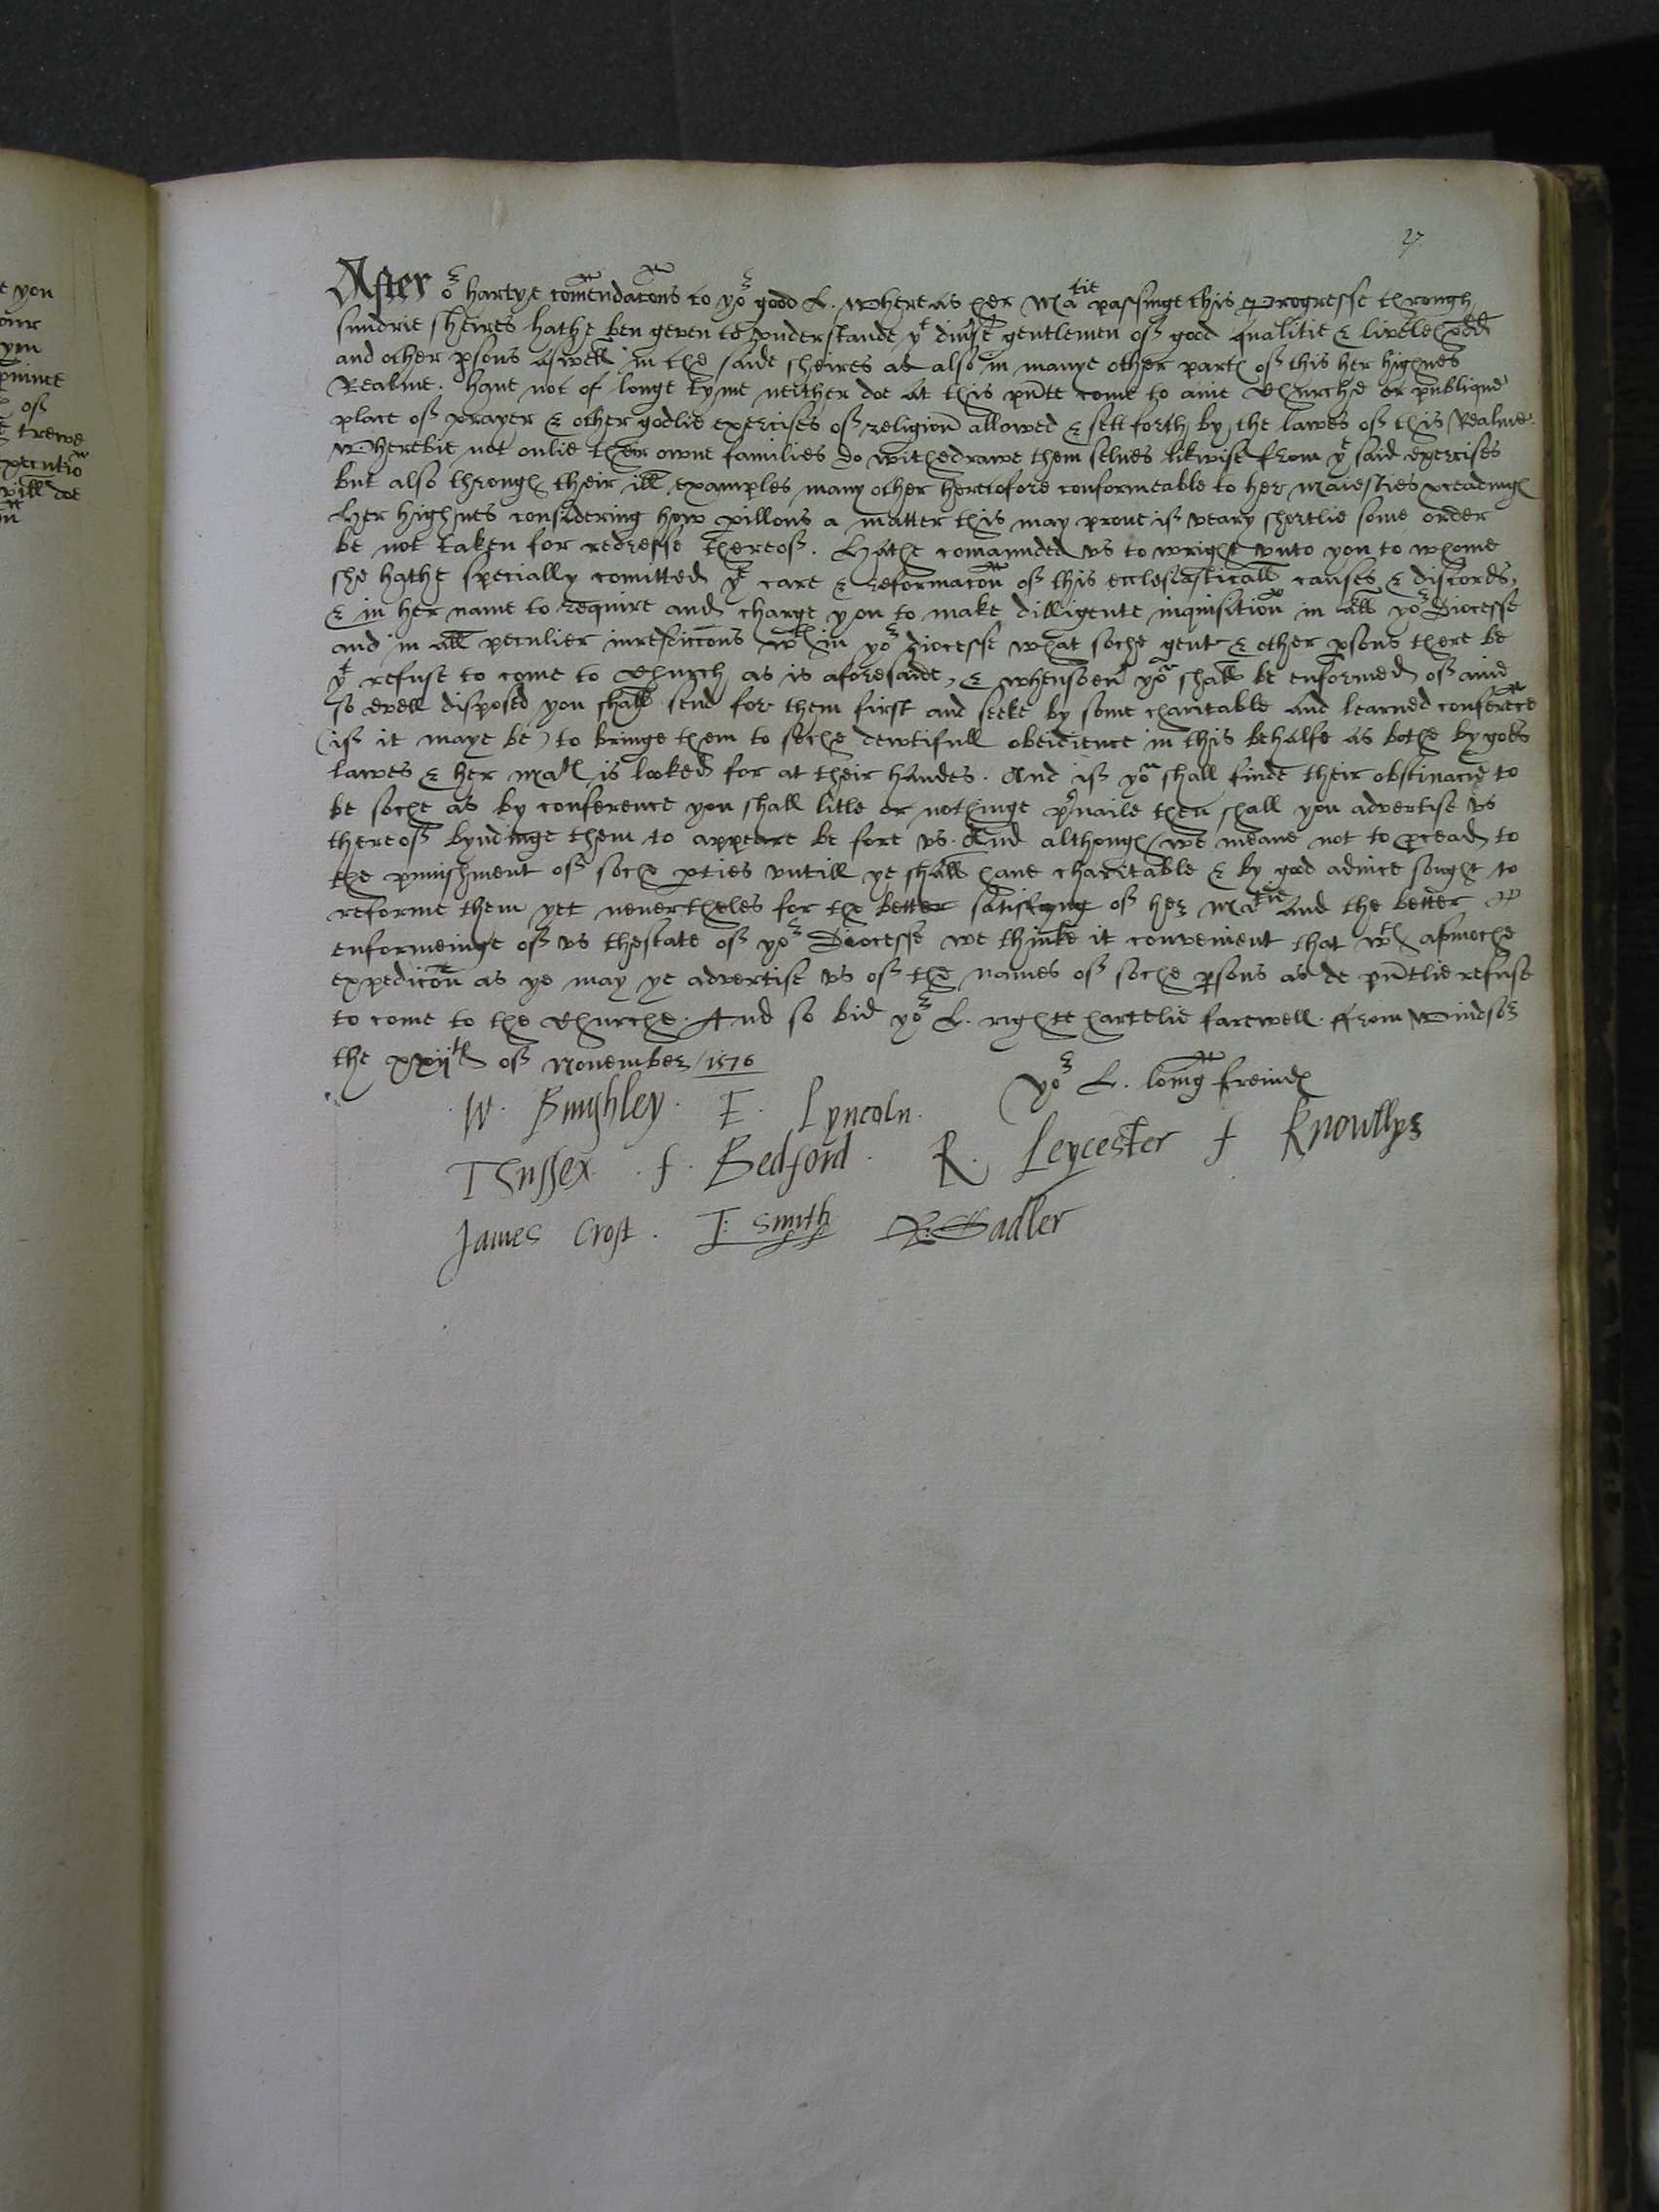 27
After or hartye comendacons to yor good L. Where as her Matie passinge this Progresse through
sundrie sheires hathe ben geven to understande yt diuse gentlemen off good qualitie & livelehodd
and other psons aswell in the saide sheires as also in manye other part off this her highnes
Realme. haue not of longe tyme neither doe at this pnte come to anie Churche or publique
place off prayer & other godlie exercises off religion allowed & sett forth by the lawes off this Realme.
Wherebie not onlie their owne families do withedrawe them selues likwise from ye said exercises
but also through their ill examples many other heretofore conformeable to her maiesties pceadings
Her highnes considering how pillous a matter this may proue iff veary shortlie some order
be not taken for redresse thereoff. Hathe comaunded vs to wright vnto you to whome
she hathe specially comitted ye care & reformacon off this ecclesiasticall causes & discords,
& in her name to require and charge you to make dilligente inquisition in all yor Diocesse
and in all peculier iuresdiccons wth in yor diocesse what soche gent & other psons there be
yt refuse to come to Church as is aforesaide, & whensoeu you shall be enformed off anie
so evell disposed you shall send for them first and seeke by some charitable and learned conferece
(iff it maye be) to bringe them to soche dewtifull obeidience in this behalfe as bothe by gods
lawes & her mats is looked for at their handes. And iff you shall finde their obstinacie to
be soche as by conference you shall litle or nothinge puaile then shall you advertise vs
thereoff byndinge them to appeare be fore vs. And although we meane not to pcead to
the punishment off soche pties vntill ye shall haue charitable & by good aduice sought to
reforme them yet neuertheles for the better satisfyng off her Matie and the better
enformeinge off vs thestate off yor Diocesse we thinke it convenient that wth asmoche
expedicon as ye may ye advertise vs off the names off soche psons as de pntlie refuse
to come to the Churche. And so bid yor L. righte hartelie farewell. ffrom Windsor
the xxijth off November 1576
yor L. loving freinds
W. Burghley. E. Lyncoln.
T Sussex. f. Bedford. R. Leycester f Knowllys
James Croft. T: Smith R. Sadler